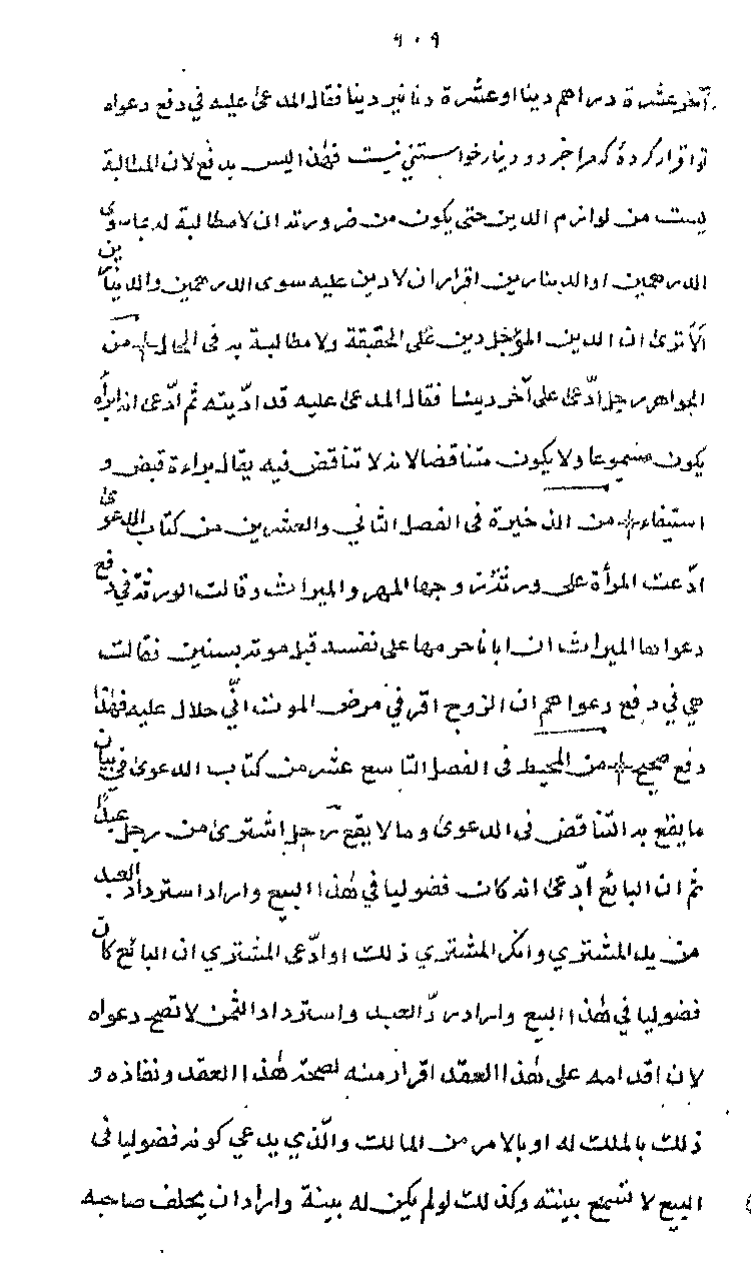 ٦٠٩
آخر عشرة دراهم دينا او عشرة دنانير دينا فقال المدعى عليه في دفع دعواه
تو اقرار كردۀ كه مرا جز دو دينار خواستنى نيست فهذا ليس بدفع لان المطالبة
ليست من لوازم الدين حتى يكون من ضرورته ان لا مطالبة له بما سوى
الدرهمين او الدينارين اقرار ان لا دين عليه سوى الدرهمين والدينارين
الا ترى ان الدين المؤجل دين على الحقيقة ولا مطالبة به في الحال + من
الجواهر رجل ادّعى على آخر دينا فقال المدعى عليه قد ادّيته ثم ادّعى انه ابرأه
يكون مسموعا ولا يكون متناقضا لانه لا تناقض فيه يقال براءة قبض و
استيفاء + من الذخيرة في الفصل الثاني والعشرين من كتاب الدعوى
ادّعت المرأة على ورثة زوجها المهر والميراث وقالت الورثة في دفع
دعواها الميراث ان ابانا حرمها على نفسه قبل موته بسنين فقالت
هي في دفع دعواهم ان الزوج اقر في مرض الموت انّي حلال عليه فهذا
دفع صحيح + من المحيط في الفصل التاسع عشر من كتاب الدعوى في بيان
ما يقع به التناقض في الدعوى وما لا يقع رجل اشترى من رجل عبدًا
ثم ان البائع ادّعى انه كان فضوليا في هذا البيع واراد استرداد العبد
من يد المشتري وانكر المشتري ذلك او ادّعى المشتري ان البائع كان
فضوليا في هذا البيع واراد ردّ العبد واسترداد الثمن لا تصح دعواه
لان اقدامه على هذا العقد اقرار منه لصحة هذا العقد ونفاذه و
ذلك بالملك له او بالامر من المالك والّذي يدعي كونه فضوليا في
البيع لا تسمع بينته وكذلك لو لم يكن له بينة واراد ان يحلف صاحبه